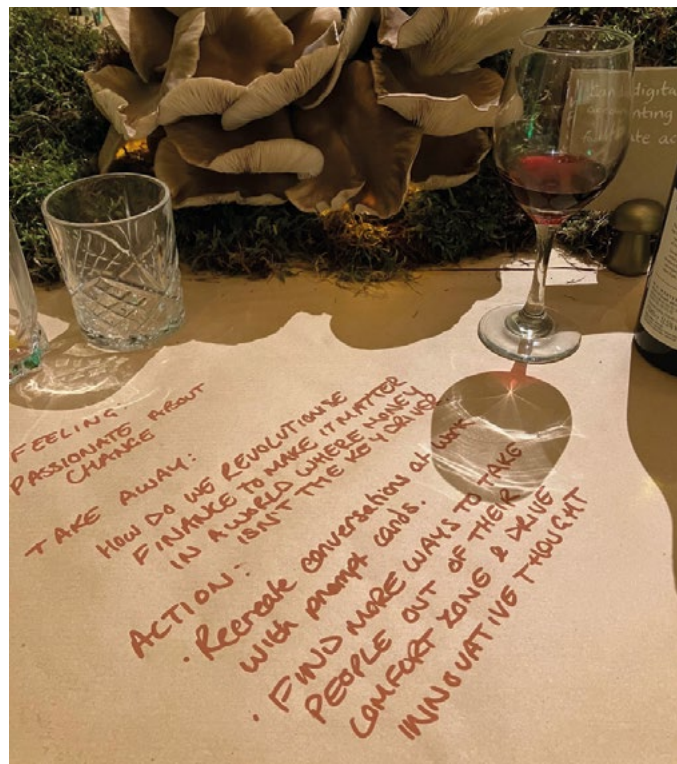 FEELING:
PASSIONATE ABOUT
CHANGE
TAKE AWAY:
HOW DO WE REVOLUTIONISE
FINANCE TO MAKE IT MATTER
IN A WORLD WHERE MONEY
ISN'T THE KEY DRIVER
ACTION:
• Recreate conversations at work
with prompt cards.
• FIND MORE WAYS TO TAKE
PEOPLE OUT OF THEIR
COMFORT ZONE & DRIVE
INNOVATIVE THOUGHT
digita